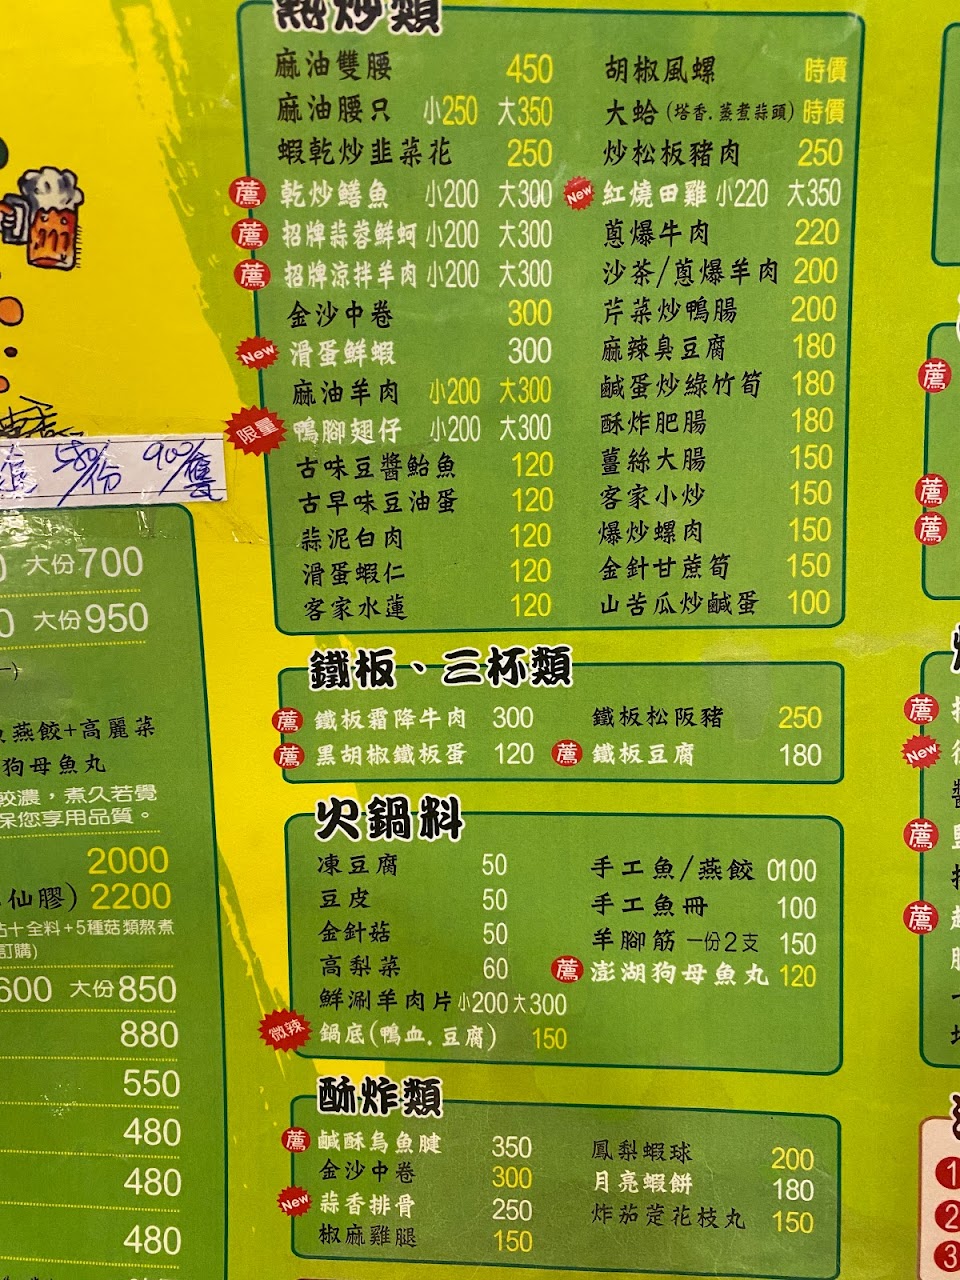 熱炒類
麻油雙腰 450
麻油腰只 小250 大350
蝦乾炒韭菜花 250
薦 乾炒鱔魚 小200 大300
薦 招牌蒜蓉鮮蚵 小200 大300
薦 招牌涼拌羊肉 小200 大300
金沙中卷 300
New 滑蛋鮮蝦 300
麻油羊肉 小200 大300
限量 鴨腳翅仔 小200 大300
古味豆醬鮐魚 120
古早味豆油蛋 120
蒜泥白肉 120
滑蛋蝦仁 120
客家水蓮 120
胡椒風螺 時價
大蛤(塔香.蒸煮蒜頭) 時價
炒松板豬肉 250
New 紅燒田雞 小220 大350
蔥爆牛肉 220
沙茶/蔥爆羊肉 200
芹菜炒鴨腸 200
麻辣臭豆腐 180
鹹蛋炒綠竹筍 180
酥炸肥腸 180
薑絲大腸 150
客家小炒 150
爆炒螺肉 150
金針甘蔗筍 150
山苦瓜炒鹹蛋 100
鐵板、三杯類
薦 鐵板霜降牛肉 300
薦 黑胡椒鐵板蛋 120
鐵板松阪豬 250
薦 鐵板豆腐 180
火鍋料
凍豆腐 50
豆皮 50
金針菇 50
高梨菜 60
鮮涮羊肉片 小200 大300
微辣 鍋底(鴨血.豆腐) 150
手工魚/燕餃 0100
手工魚冊 100
羊腳筋 一份2支 150
薦 澎湖狗母魚丸 120
酥炸類
薦 鹹酥烏魚腱 350
金沙中卷 300
New 蒜香排骨 250
椒麻雞腿 150
鳳梨蝦球 200
月亮蝦餅 180
炸茄萣花枝丸 150
580/份 900/隻
大份700
大份950
燕餃+高麗菜
狗母魚丸
較濃，煮久若覺
保您享用品質。
2000
仙膠) 2200
十全料+5種菇類熬煮
訂購)
600 大份850
880
550
480
480
480
薦
薦
薦
薦
New
薦
薦
1
2
3